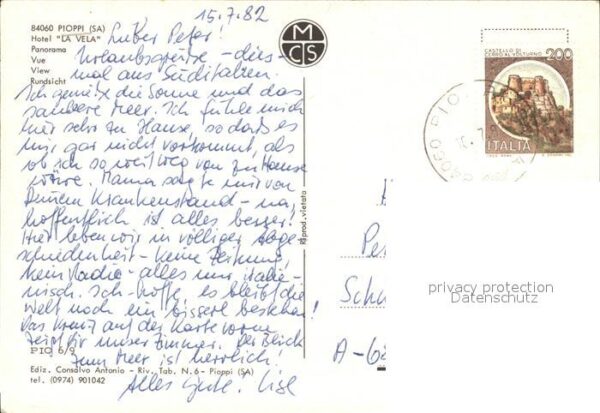 15.7.82
84060 PIOPPI (SA)
Hotel "LA VELA"
Panorama
Vue
View
Rundsicht
Lieber Peter!
Urlaubsgrüsse - dies-
mal aus Süditalien.
Ich genieße die Sonne und das
saubere Meer. Ich fühle mich
hier sehr zu Hause, so daß es
mir gar nicht vorkommt, als
ob ich so weit weg von zu Hause
wäre. Mama sagte mir von
Deinem Krankenstand - na,
hoffentlich ist alles besser!
Hier leben wir in völliger Abge-
schiedenheit - keine Zeitung,
kein Radio - alles nur italie-
nisch. Ich hoffe, es bleibt die
Welt noch ein bisserl bestehen!
Das Kreuz auf der Karte vorne
zeigt Dir unser Zimmer. Der Blick
zum Meer ist herrlich!
Alles Gute. Lisl
PIO 6/9
Ediz. Consalvo Antonio - Riv. Tab. N. 6 - Pioppi (SA)
tel. (0974) 901042
MCS
Riprod. vietata
CASTELLO DI
CERRO AL VOLTURNO
200
ITALIA
84060 PIO
Pe
Schu
A-6
privacy protection
Datenschutz